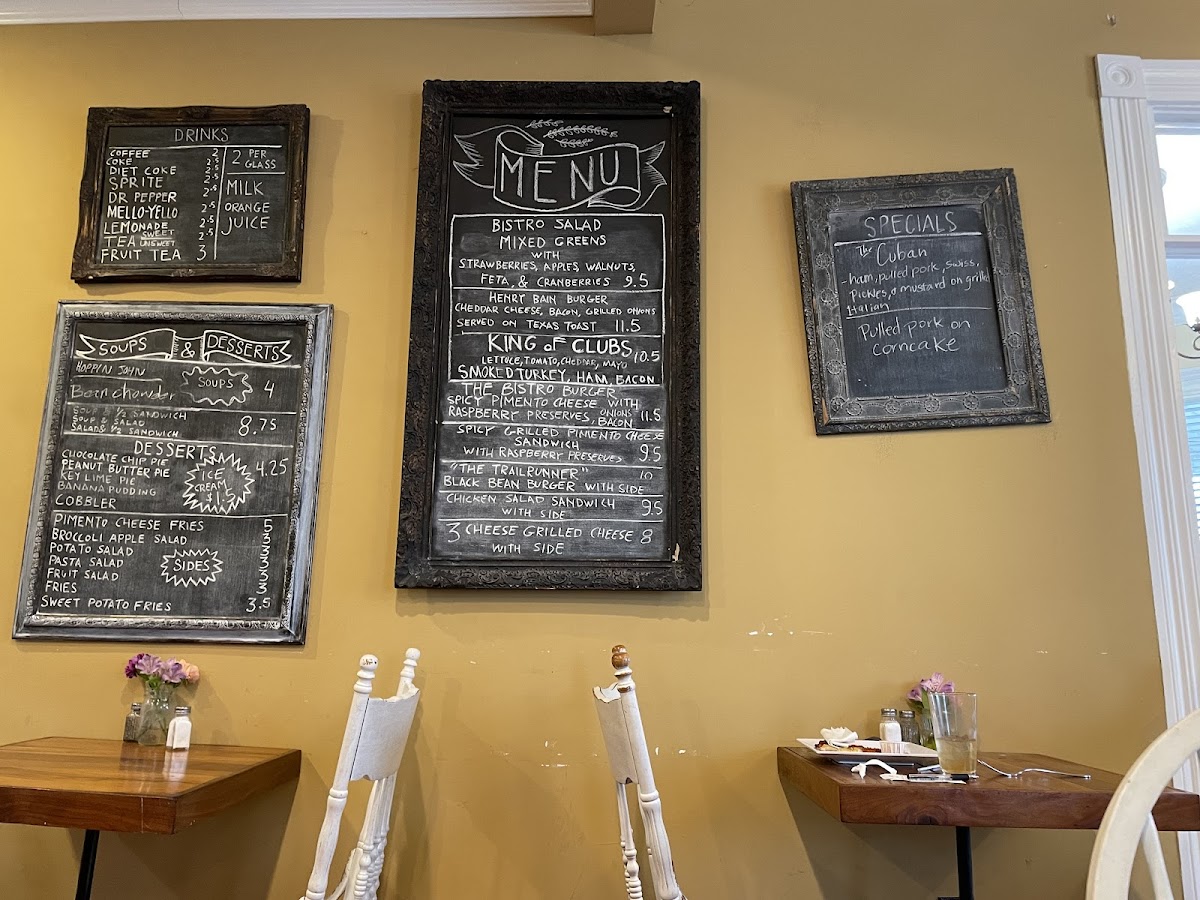 DRINKS
COFFEE 2
COKE 2.5
DIET COKE 2.5
SPRITE 2.5
DR PEPPER
MELLO-YELLO 2.5
LEMONADE 2.5
TEA SWEET UNSWEET 2.5
FRUIT TEA 3
2 PER
GLASS
MILK
ORANGE
JUICE
SOUPS & DESSERTS
HOPPIN JOHN
Beer chowder
SOUPS 4
SOUP & 1/2 SANDWICH
SOUP & SALAD 8.75
SALAD & 1/2 SANDWICH
DESSERTS
CHOCOLATE CHIP PIE 4.25
PEANUT BUTTER PIE
KEY LIME PIE
BANANA PUDDING
COBBLER
ICE
CREAM
$1.5
PIMENTO CHEESE FRIES 5
BROCCOLI APPLE SALAD 3
POTATO SALAD 3
PASTA SALAD 3
FRUIT SALAD 3
FRIES 3
SWEET POTATO FRIES 3.5
SIDES
MENU
BISTRO SALAD
MIXED GREENS
WITH
STRAWBERRIES, APPLES, WALNUTS,
FETA, & CRANBERRIES 9.5
HENRY BAIN BURGER
CHEDDAR CHEESE, BACON, GRILLED ONIONS
SERVED ON TEXAS TOAST 11.5
KING OF CLUBS 10.5
LETTUCE, TOMATO, CHEDDAR, MAYO
SMOKED TURKEY, HAM, BACON
THE BISTRO BURGER
SPICY PIMENTO CHEESE WITH
RASPBERRY PRESERVES, ONIONS, BACON 11.5
SPICY GRILLED PIMENTO CHEESE
SANDWICH
WITH RASPBERRY PRESERVES 9.5
"THE TRAILRUNNER" 10
BLACK BEAN BURGER WITH SIDE
CHICKEN SALAD SANDWICH 9.5
WITH SIDE
3 CHEESE GRILLED CHEESE 8
WITH SIDE
SPECIALS
The Cuban
-ham, pulled pork, swiss,
pickles, & mustard on grilled
Italian
Pulled pork on
corncake